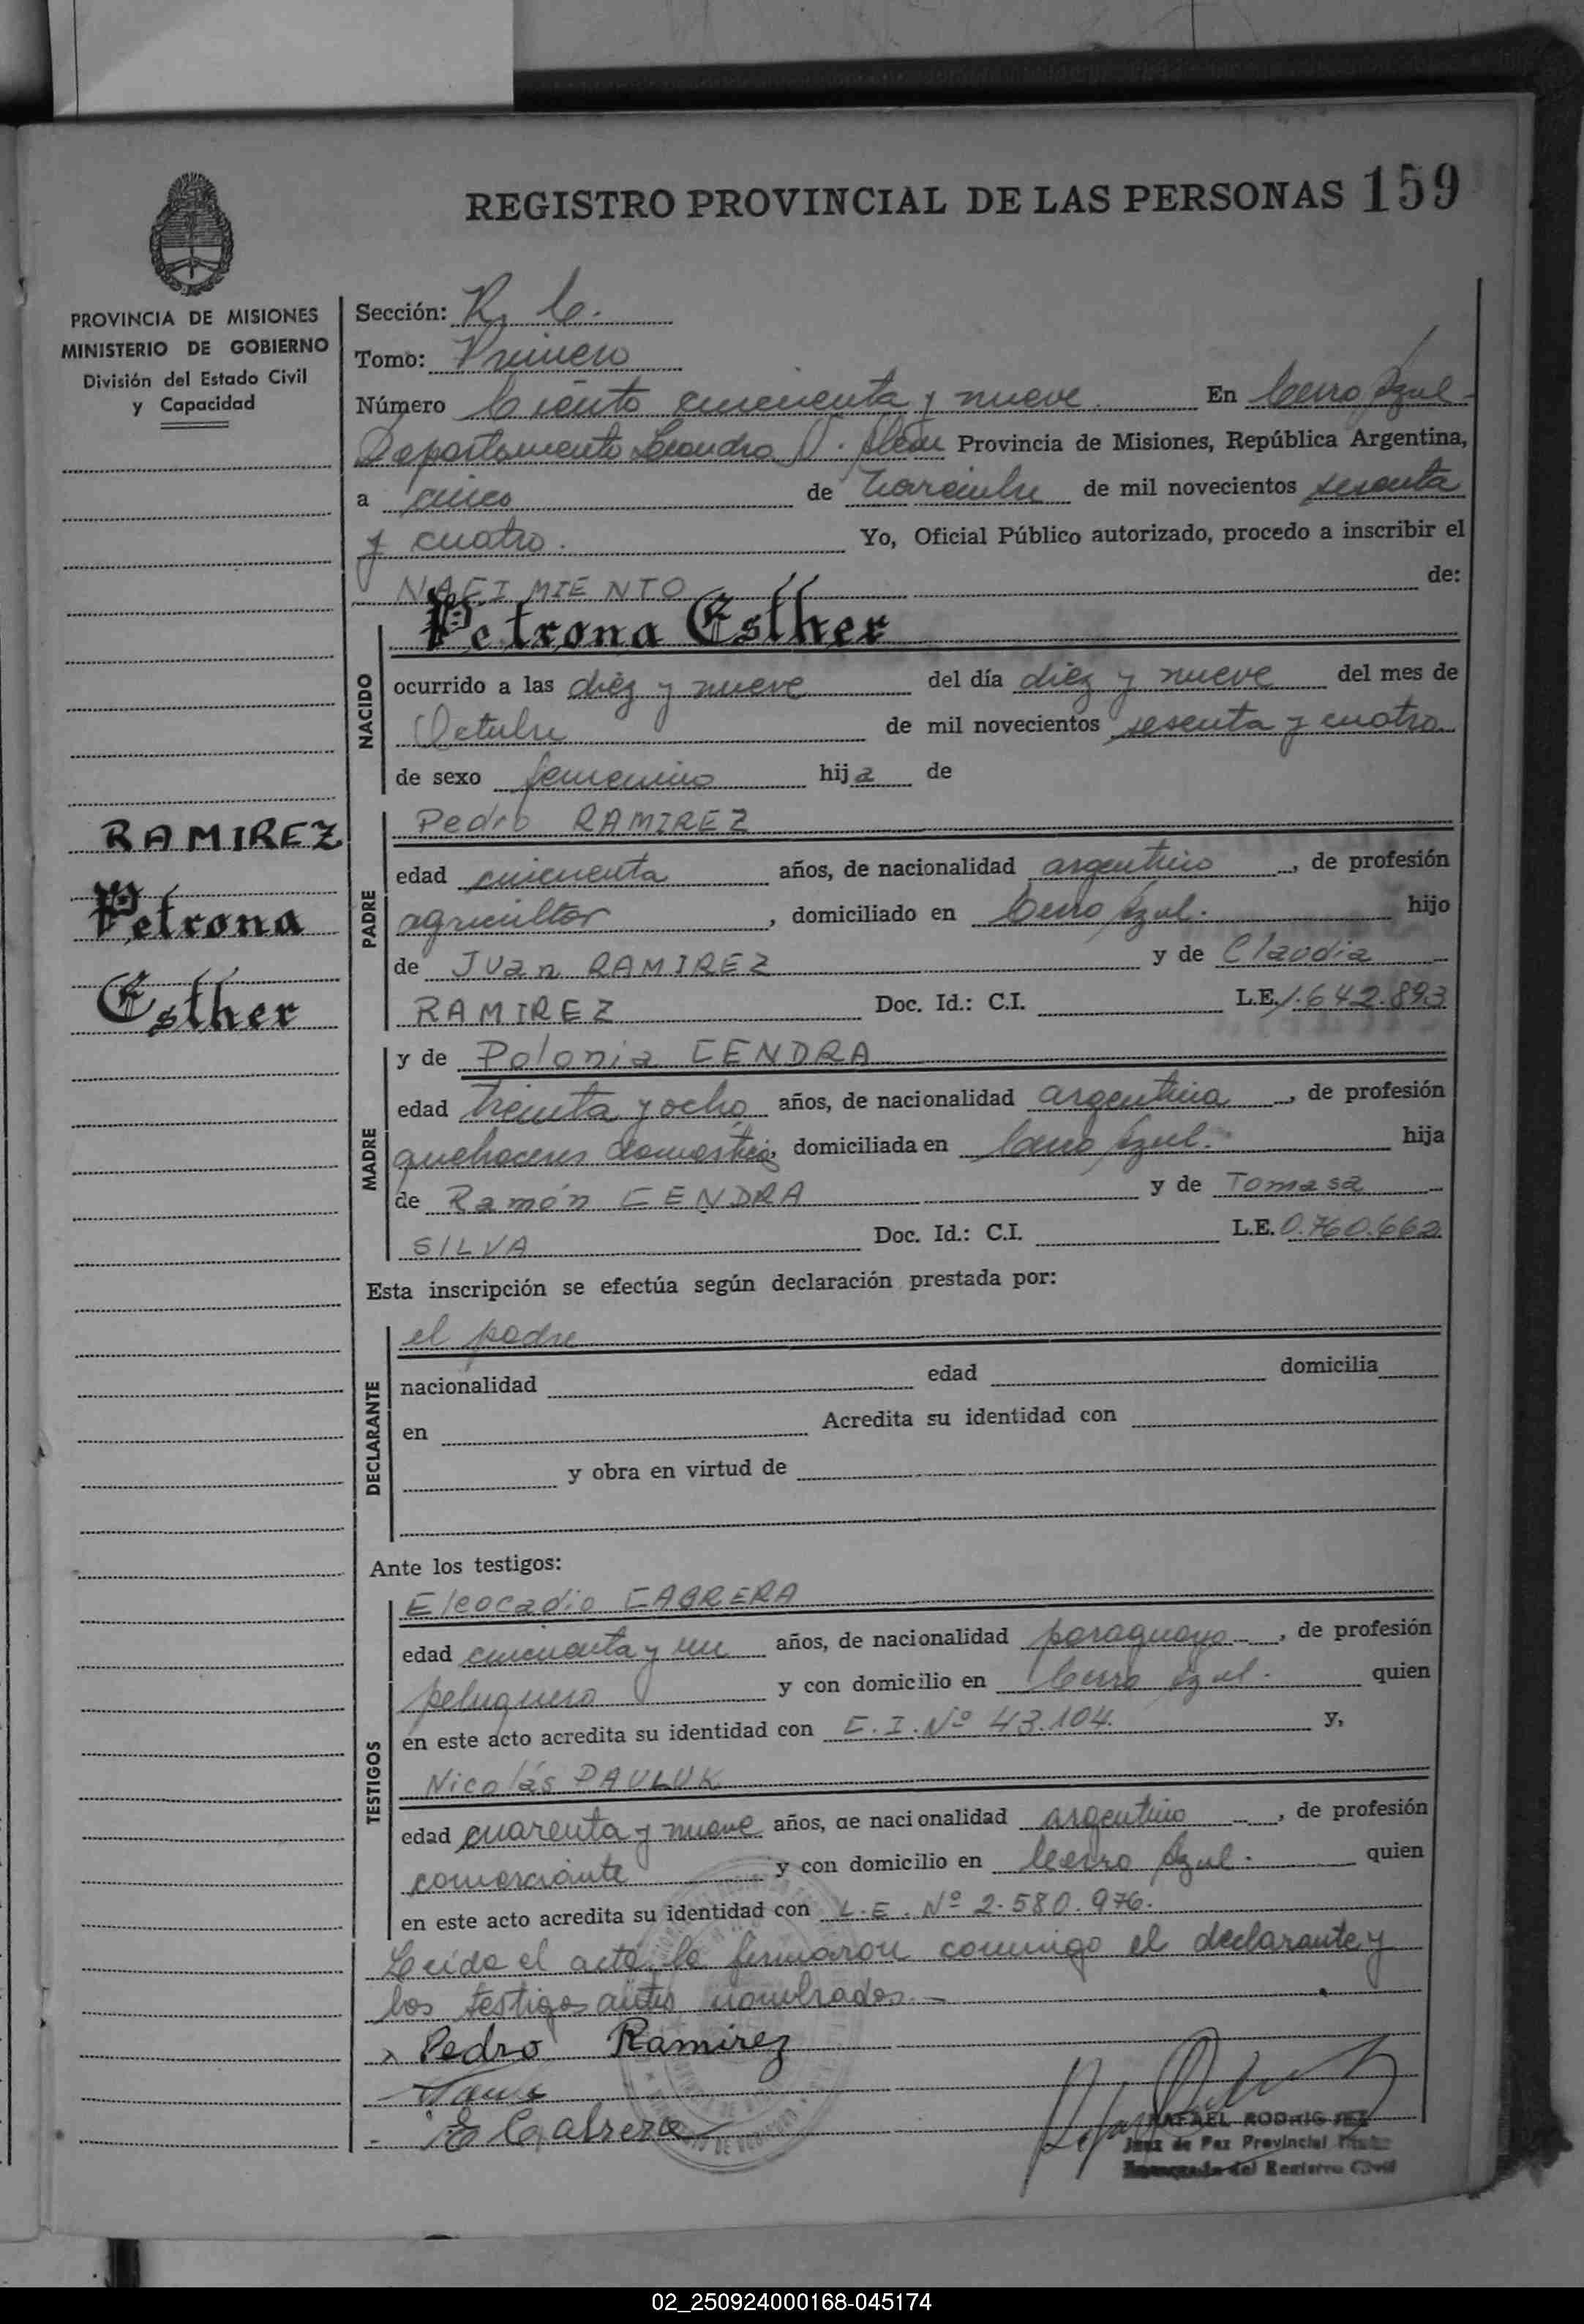 REGISTRO PROVINCIAL DE LAS PERSONAS 159
PROVINCIA DE MISIONES
MINISTERIO DE GOBIERNO
División del Estado Civil
y Capacidad
RAMIREZ
Petrona
Esther
Sección: R. C.
Tomo: Primero
Número Ciento cincuenta y nueve En Cerro Azul
Departamento Leandro N. Alem Provincia de Misiones, República Argentina,
a cinco de Noviembre de mil novecientos sesenta
y cuatro. Yo, Oficial Público autorizado, procedo a inscribir el
NACIMIENTO de:
NACIDO
Petrona Esther
ocurrido a las diez y nueve del día diez y nueve del mes de
Octubre de mil novecientos sesenta y cuatro
de sexo femenino hija de
PADRE
Pedro RAMIREZ
edad cincuenta años, de nacionalidad argentino, de profesión
agricultor, domiciliado en Cerro Azul. hijo
de Juan RAMIREZ y de Claudia
RAMIREZ Doc. Id.: C.I. L.E. 1.642.893
MADRE
y de Polonia CENDRA
edad treinta y ocho años, de nacionalidad argentina, de profesión
quehaceres domésticos, domiciliada en Cerro Azul. hija
de Ramón CENDRA y de Tomasa
SILVA Doc. Id.: C.I. L.E. 0.760.662
Esta inscripción se efectúa según declaración prestada por:
DECLARANTE
el padre
nacionalidad edad domicilia
en Acredita su identidad con
y obra en virtud de
Ante los testigos:
TESTIGOS
Eleocadio CABRERA
edad cincuenta y un años, de nacionalidad paraguayo, de profesión
peluquero y con domicilio en Cerro Azul. quien
en este acto acredita su identidad con C.I. Nº 43.104. y,
Nicolás PAULUK
edad cuarenta y nueve años, de nacionalidad argentino, de profesión
comerciante y con domicilio en Cerro Azul. quien
en este acto acredita su identidad con L.E. Nº 2.580.976.
Leída el acta, la firmaron conmigo el declarante y
los testigos antes nombrados.-
x Pedro Ramirez
E Cabrera
RAFAEL RODRIGUEZ
Juez de Paz Provincial
Encargado del Registro Civil
02_250924000168-045174